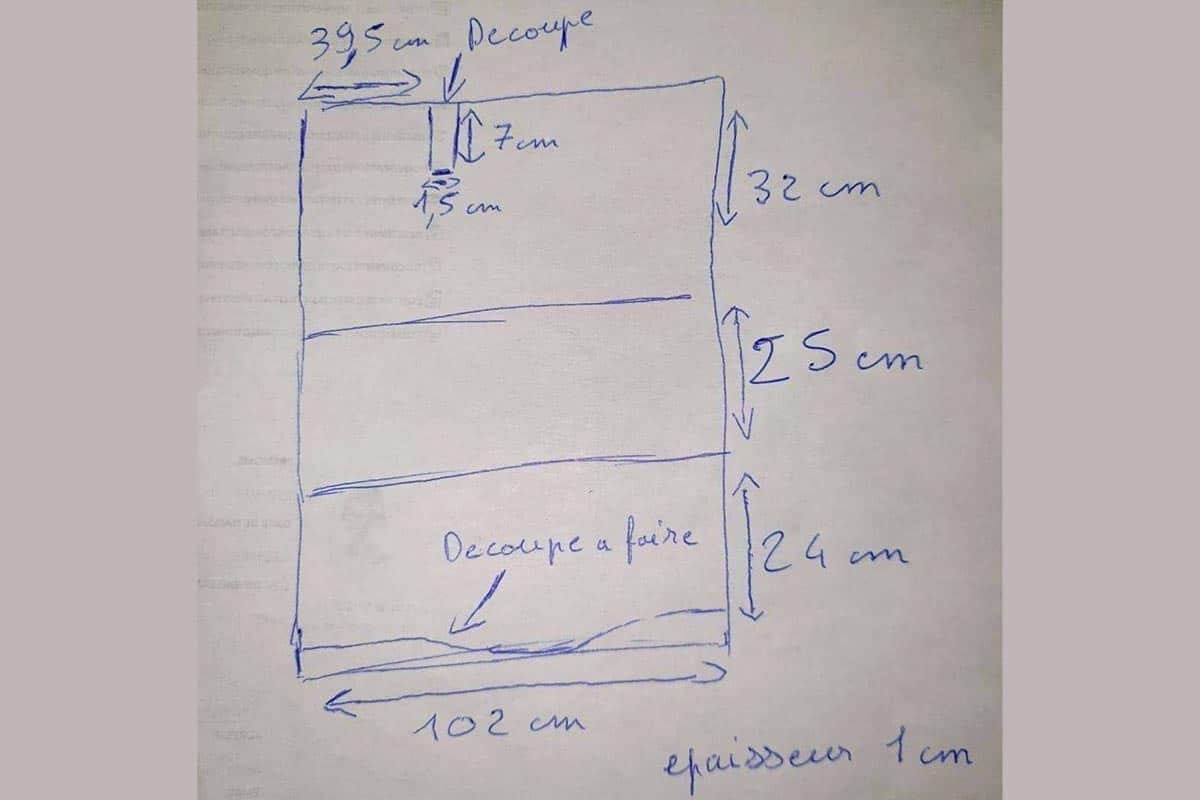 39,5 cm
Decoupe
7cm
1,5 cm
32 cm
25 cm
Decoupe a faire
24 cm
102 cm
epaisseur 1 cm